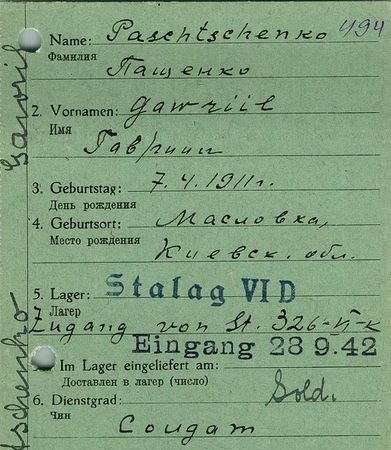 Name: Paschtschenko 494
Фамилия
Пащенко
2. Vornamen: Gawriil
Имя
Гавриил
3. Geburtstag: 7.4.1911г.
День рождения
4. Geburtsort: Масловка,
Место рождения
Киевск. обл.
5. Lager: Stalag VI D
Лагер
Zugang von St. 326-VI-K
Eingang 28 9.42
Im Lager eingeliefert am:
Доставлен в лагер (число)
6. Dienstgrad: Sold.
Чин
Солдат